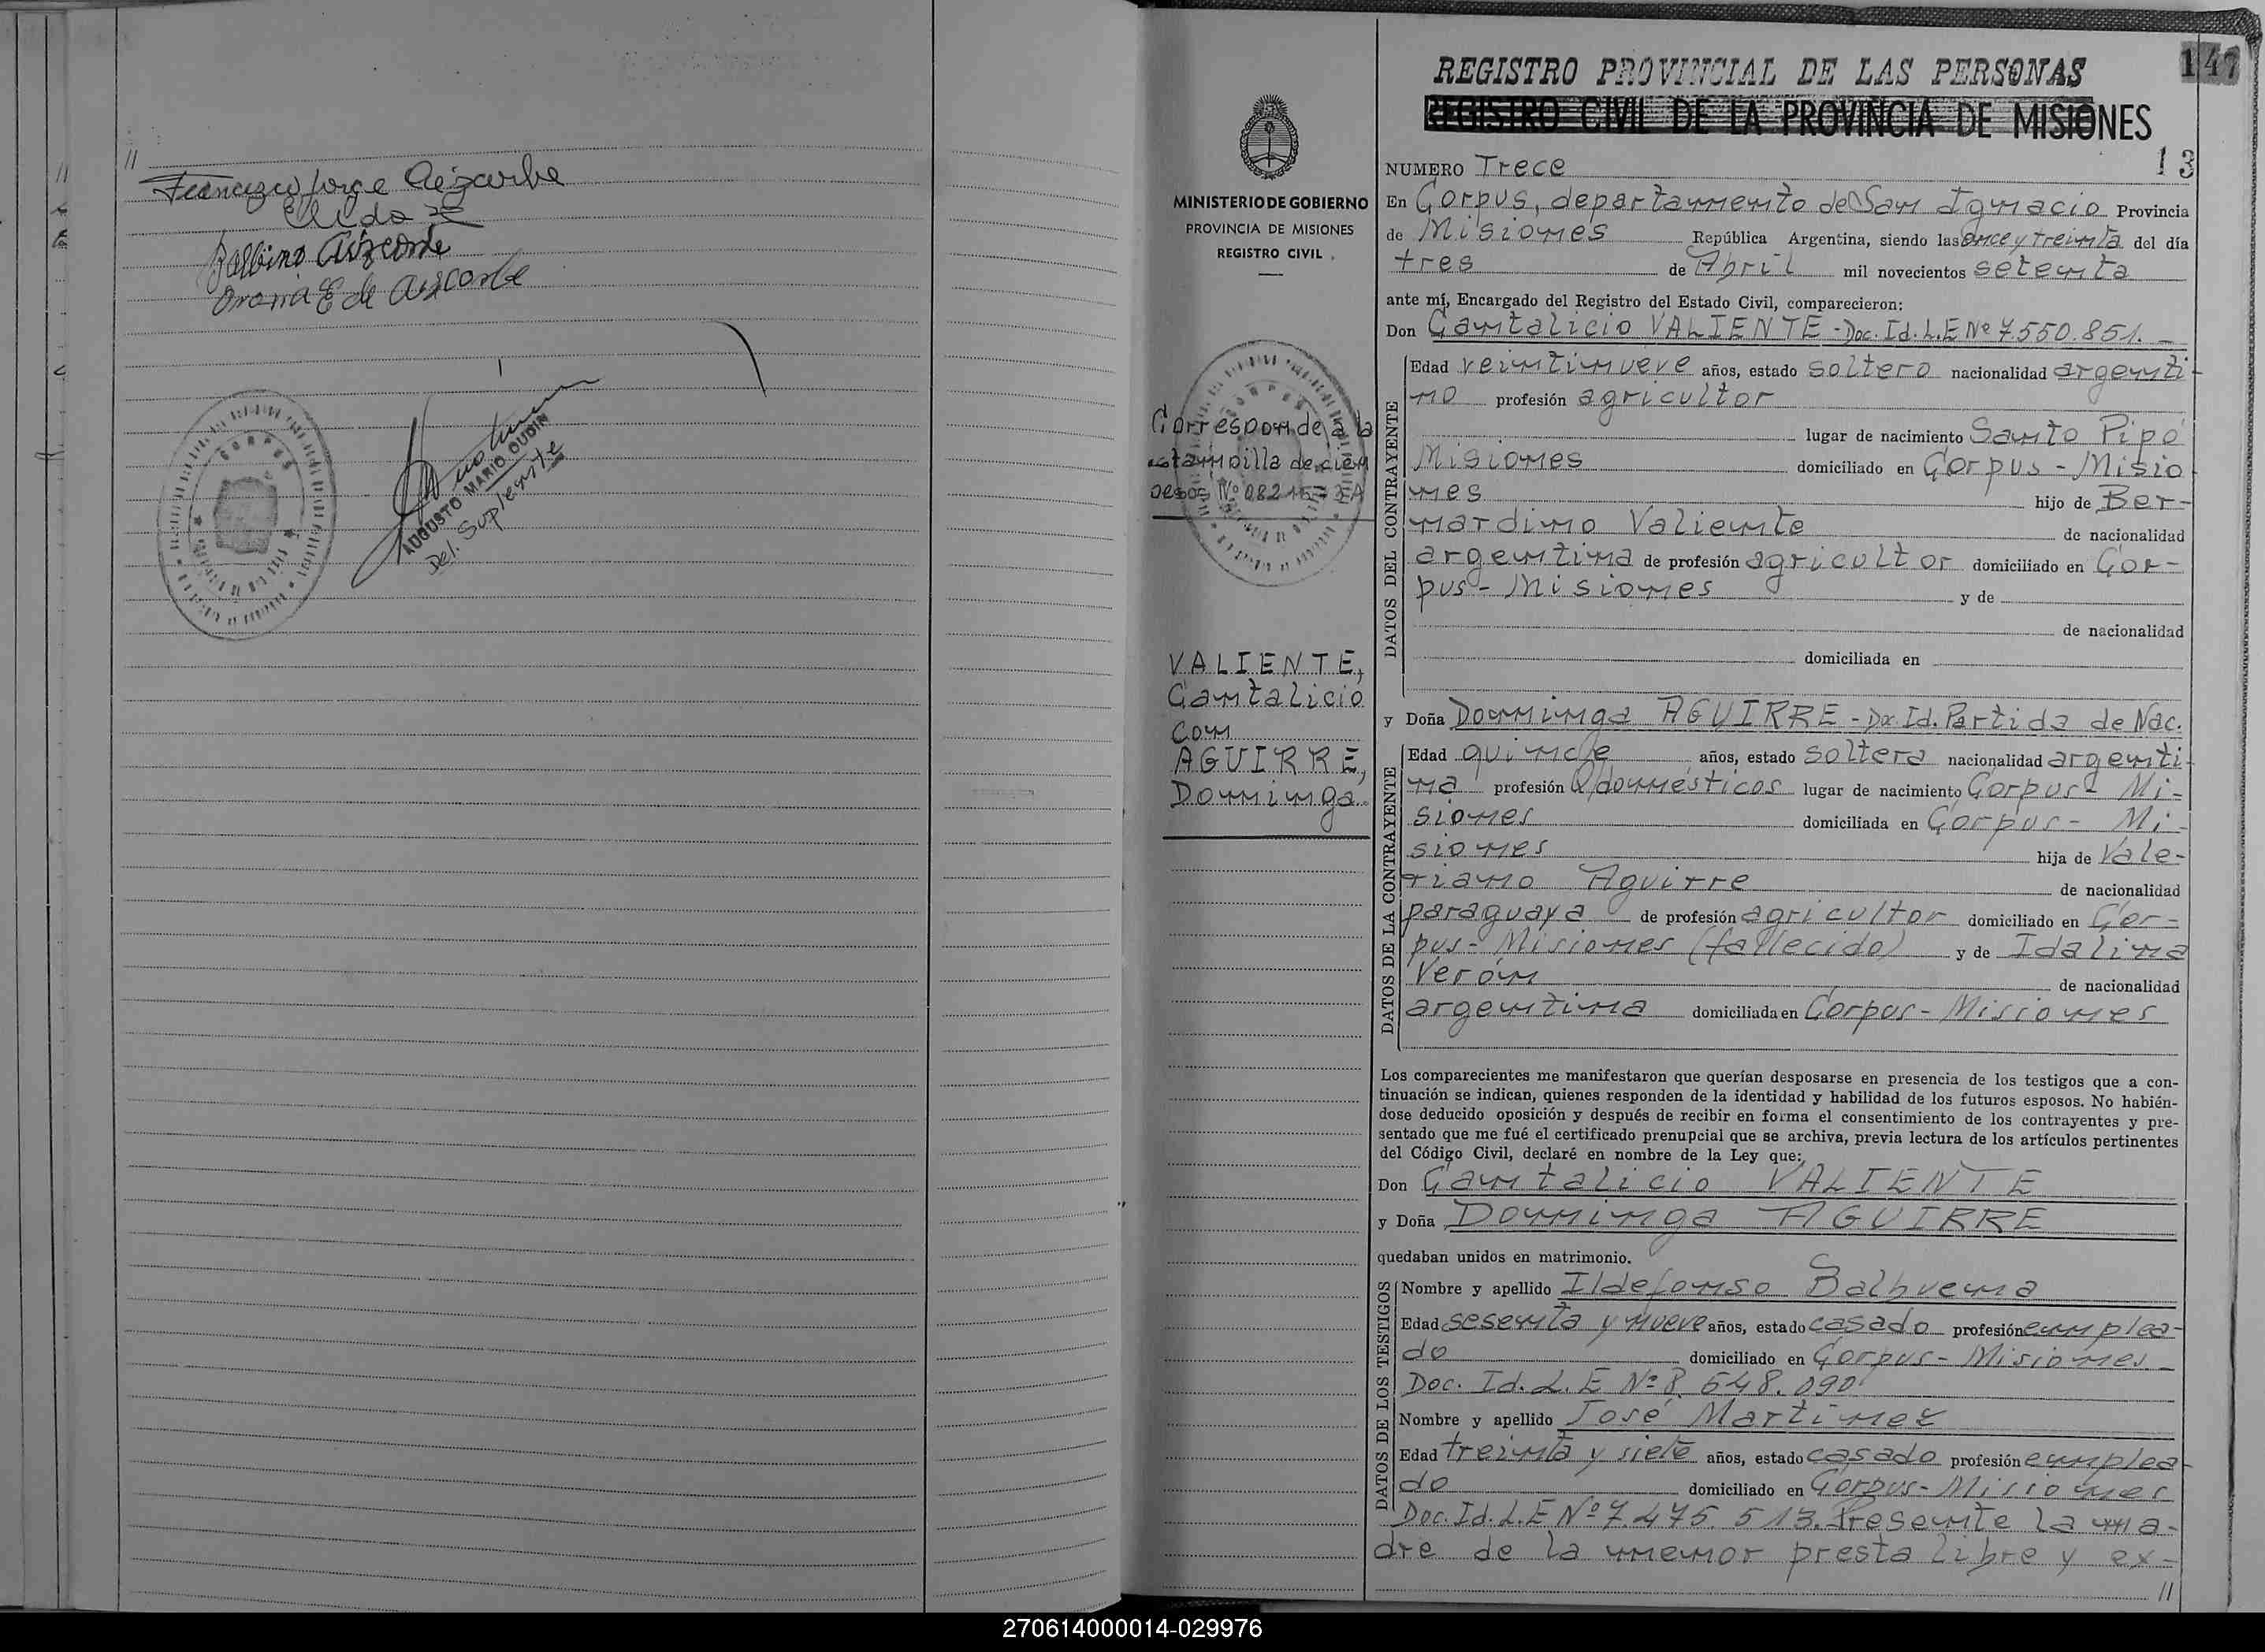 //
Francisco Jorge Aizcorbe
Elida
Balbino Aizcorbe
E de Aizcorbe
AUGUSTO MARIO OUDIN
Del. Suplente
147
REGISTRO PROVINCIAL DE LAS PERSONAS
REGISTRO CIVIL DE LA PROVINCIA DE MISIONES
MINISTERIO DE GOBIERNO
PROVINCIA DE MISIONES
REGISTRO CIVIL
Corresponde a la
estampilla de cien
pesos Nº
VALIENTE,
Cantalicio
con
AGUIRRE,
Dominga.
13
NUMERO Trece
En Corpus, departamento de San Ignacio Provincia
de Misiones República Argentina, siendo las once y treinta del día
tres de Abril mil novecientos setenta
ante mí, Encargado del Registro del Estado Civil, comparecieron:
Don Cantalicio VALIENTE - Doc. Id. L.E Nº 7.550.851. -
DATOS DEL CONTRAYENTE
Edad veintinueve años, estado soltero nacionalidad argenti-
no profesión agricultor
lugar de nacimiento Santo Pipó
Misiones domiciliado en Corpus - Misio
nes hijo de Ber-
nardino Valiente de nacionalidad
argentina de profesión agricultor domiciliado en Cor-
pus - Misiones y de
de nacionalidad
domiciliada en
y Doña Dominga AGUIRRE - Doc. Id. Partida de Nac.
DATOS DE LA CONTRAYENTE
Edad quince años, estado soltera nacionalidad argenti-
na profesión Q/domésticos lugar de nacimiento Corpus - Mi-
siones domiciliada en Corpus - Mi-
siones hija de Vale-
riano Aguirre de nacionalidad
paraguaya de profesión agricultor domiciliado en Cor-
pus - Misiones (fallecido) y de Idalina
Verón de nacionalidad
argentina domiciliada en Corpus - Misiones
Los comparecientes me manifestaron que querían desposarse en presencia de los testigos que a con-
tinuación se indican, quienes responden de la identidad y habilidad de los futuros esposos. No habién-
dose deducido oposición y después de recibir en forma el consentimiento de los contrayentes y pre-
sentado que me fué el certificado prenupcial que se archiva, previa lectura de los artículos pertinentes
del Código Civil, declaré en nombre de la Ley que:
Don Cantalicio VALIENTE
y Doña Dominga AGUIRRE
quedaban unidos en matrimonio.
DATOS DE LOS TESTIGOS
Nombre y apellido Ildefonso Balbuena
Edad sesenta y nueve años, estado casado profesión emplea-
do domiciliado en Corpus - Misiones -
Doc. Id. L.E Nº 8.648.090
Nombre y apellido José Martinez
Edad treinta y siete años, estado casado profesión emplea-
do domiciliado en Corpus - Misiones
Doc. Id. L.E Nº 7.475.513. Presente la ma-
dre de la menor presta libre y ex-
//
270614000014-029976